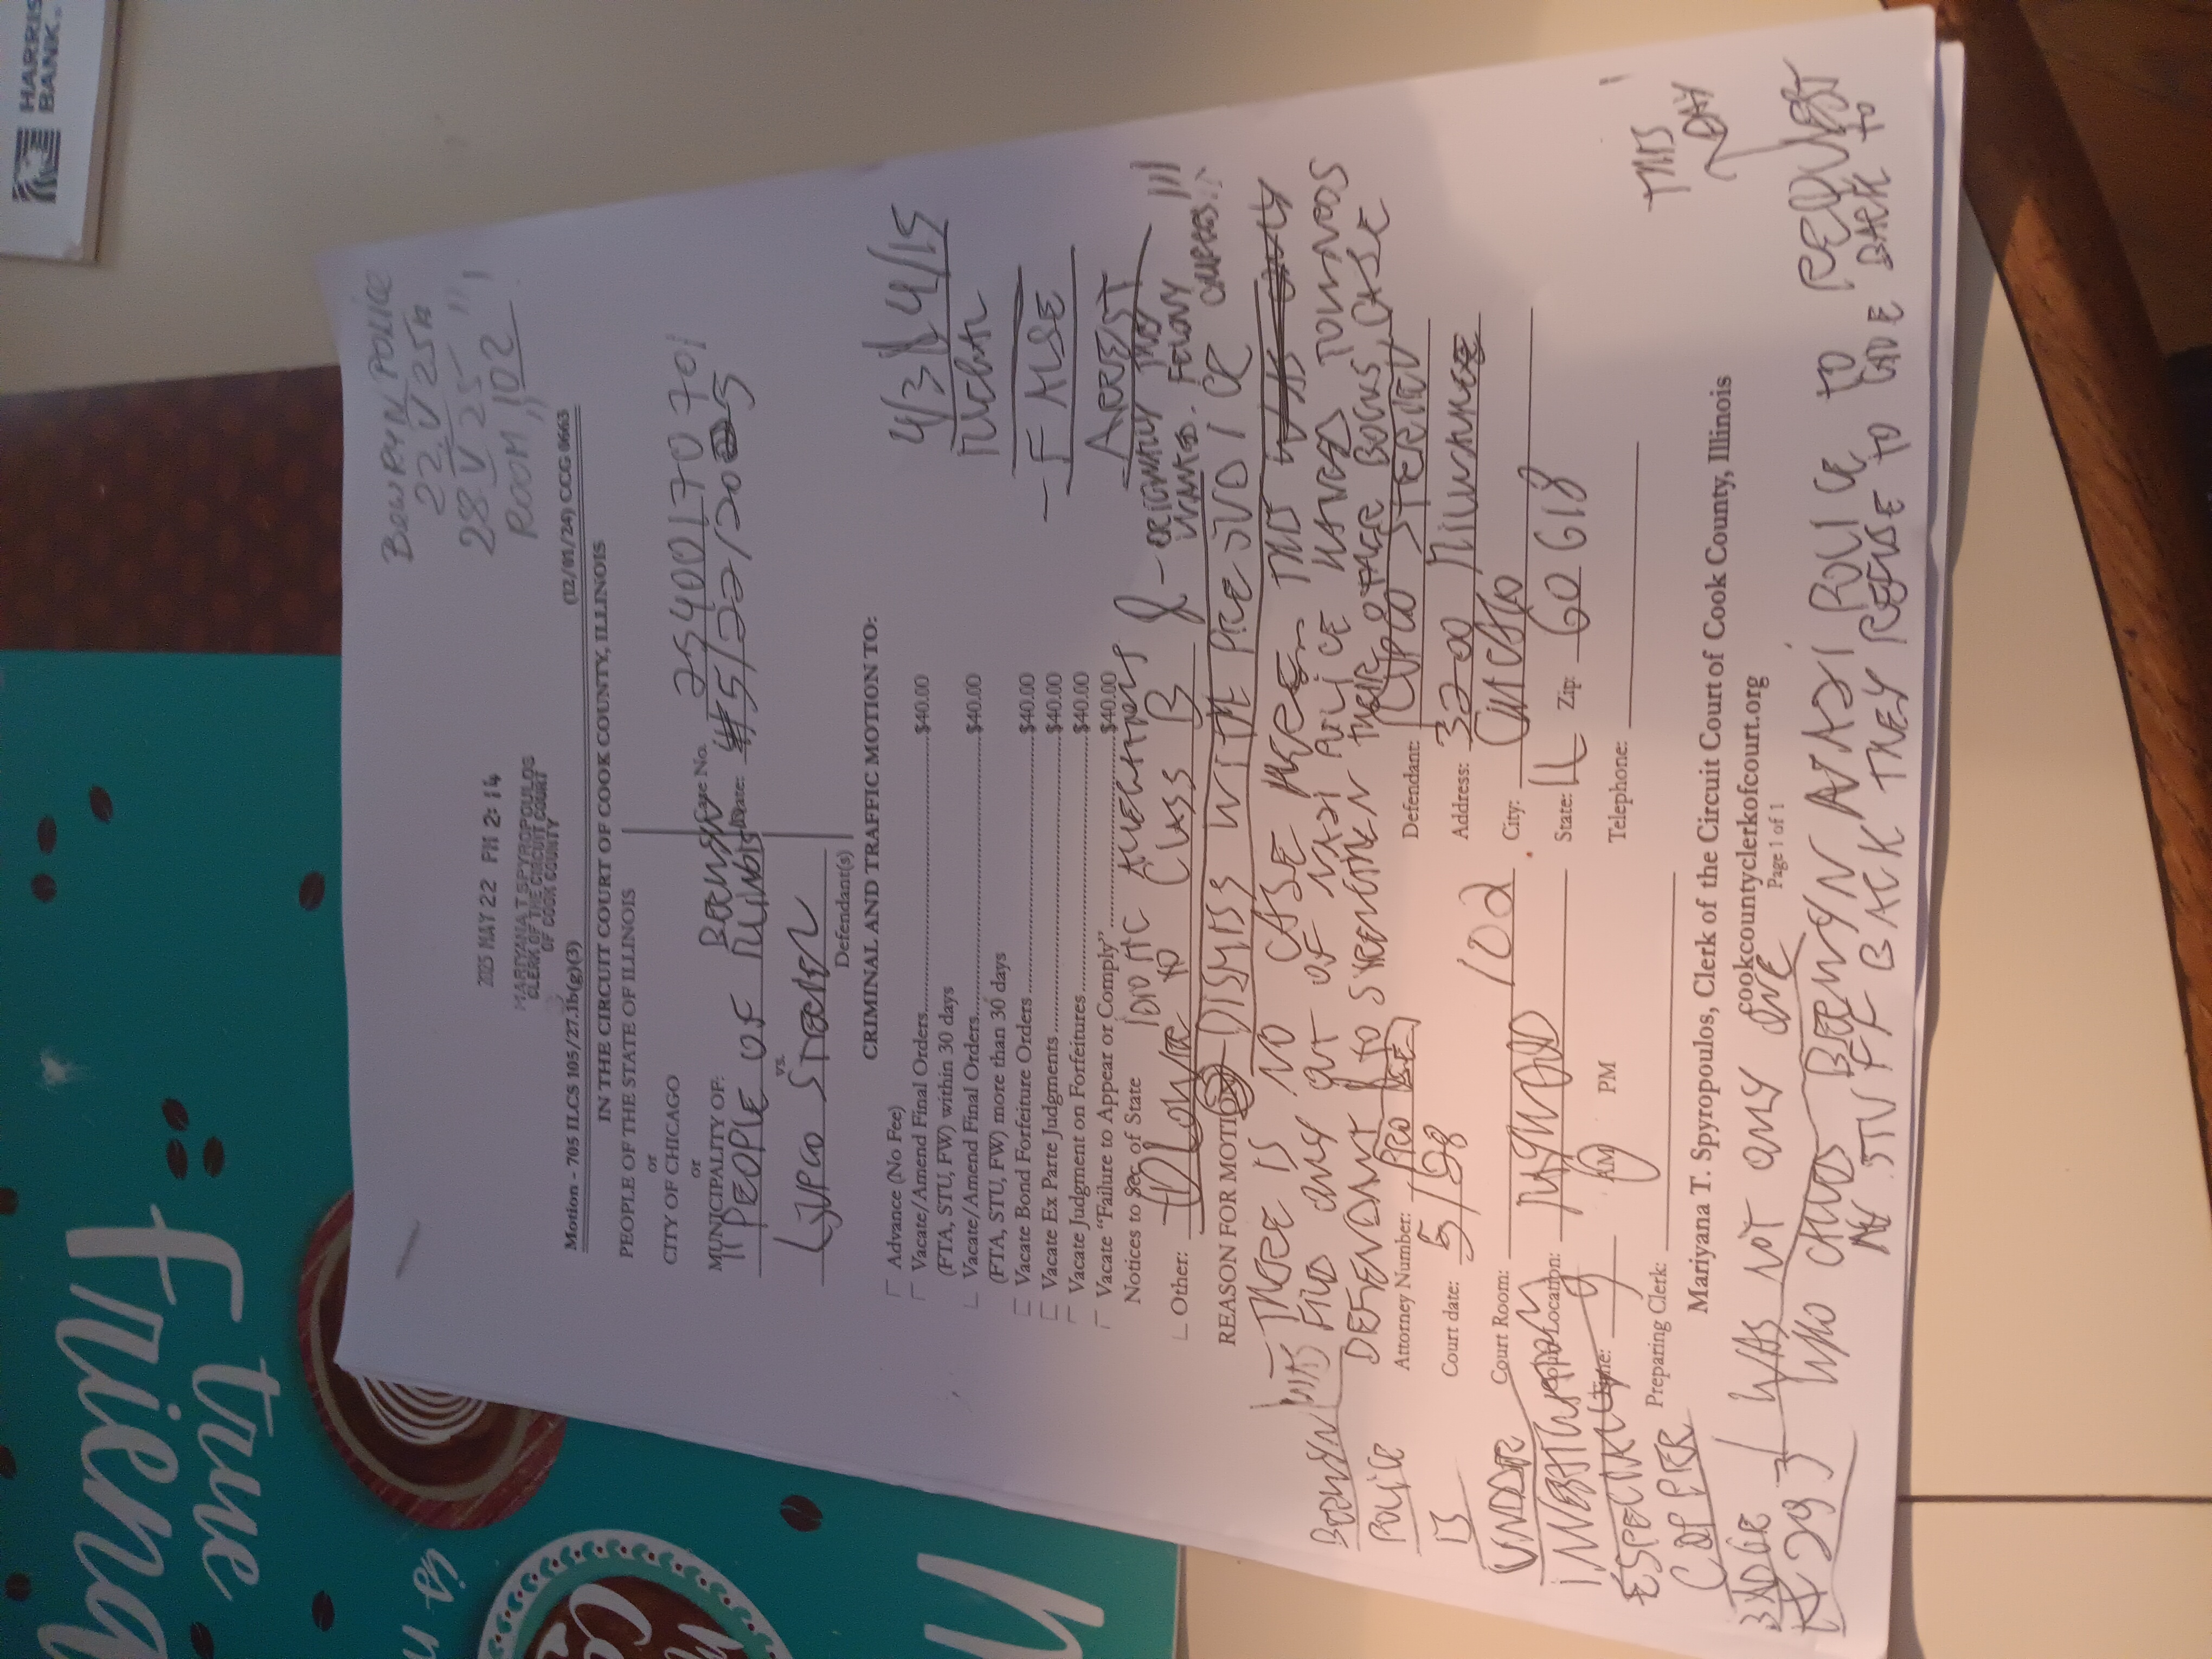 HARRIS
BANK.
true
friend
is
BERWYN POLICE
22 V 25
28 V 25
ROOM 102
2025 MAY 22 PM 2:14
MARIYANA T SPYROPOULOS
CLERK OF THE CIRCUIT COURT
OF COOK COUNTY
Motion - 705 ILCS 105/27.1b(g)(3) (12/01/24) CCG 0663
IN THE CIRCUIT COURT OF COOK COUNTY, ILLINOIS
PEOPLE OF THE STATE OF ILLINOIS
or
CITY OF CHICAGO
or
MUNICIPALITY OF: BERWYN
PEOPLE OF ILLINOIS
vs.
Defendant(s)
Case No. 25400170701
Date: 5/22/2025
CRIMINAL AND TRAFFIC MOTION TO:
Advance (No Fee)
Vacate/Amend Final Orders $40.00
(FTA, STU, FW) within 30 days
Vacate/Amend Final Orders $40.00
(FTA, STU, FW) more than 30 days
Vacate Bond Forfeiture Orders $40.00
Vacate Ex Parte Judgments $40.00
Vacate Judgment on Forfeitures $40.00
Vacate "Failure to Appear or Comply" $40.00
Notices to Sec of State
4/3 4/15
FALSE
ARREST
IDIOTIC
Other: TO CLASS B
ORIGINALLY THEY
WANTED FELONY
REASON FOR MOTION: DISMIS WITH PREJUDICE
THERE IS NO CASE HERE THIS
FILD ONLY OUT OF NAZI POLICE HATRED TOWARDS
DEFENDANT & TO STRENGTHEN THEIR OTHER BOGUS CASE
BERWYN
POLICE
IS
UNDER
INVESTIGATION
ESPECIALLY
COPPER
BADGE
# 293
Attorney Number: PRO SE
Court date: 5/28
Court Room: 102
Court Location: MAYWOOD
Time: 9 AM PM
Preparing Clerk:
Defendant:
Address: 3200 MILWAUKEE
City: CHICAGO
State: IL Zip: 60618
Telephone:
Mariyana T. Spyropoulos, Clerk of the Circuit Court of Cook County, Illinois
cookcountyclerkofcourt.org
Page 1 of 1
THIS
DAY
I WAS NOT ONLY ONE
WHO BERWYN NAZI POLICE TO REQUEST
MY STUFF BACK THEY REFUSE TO GIVE BACK TO